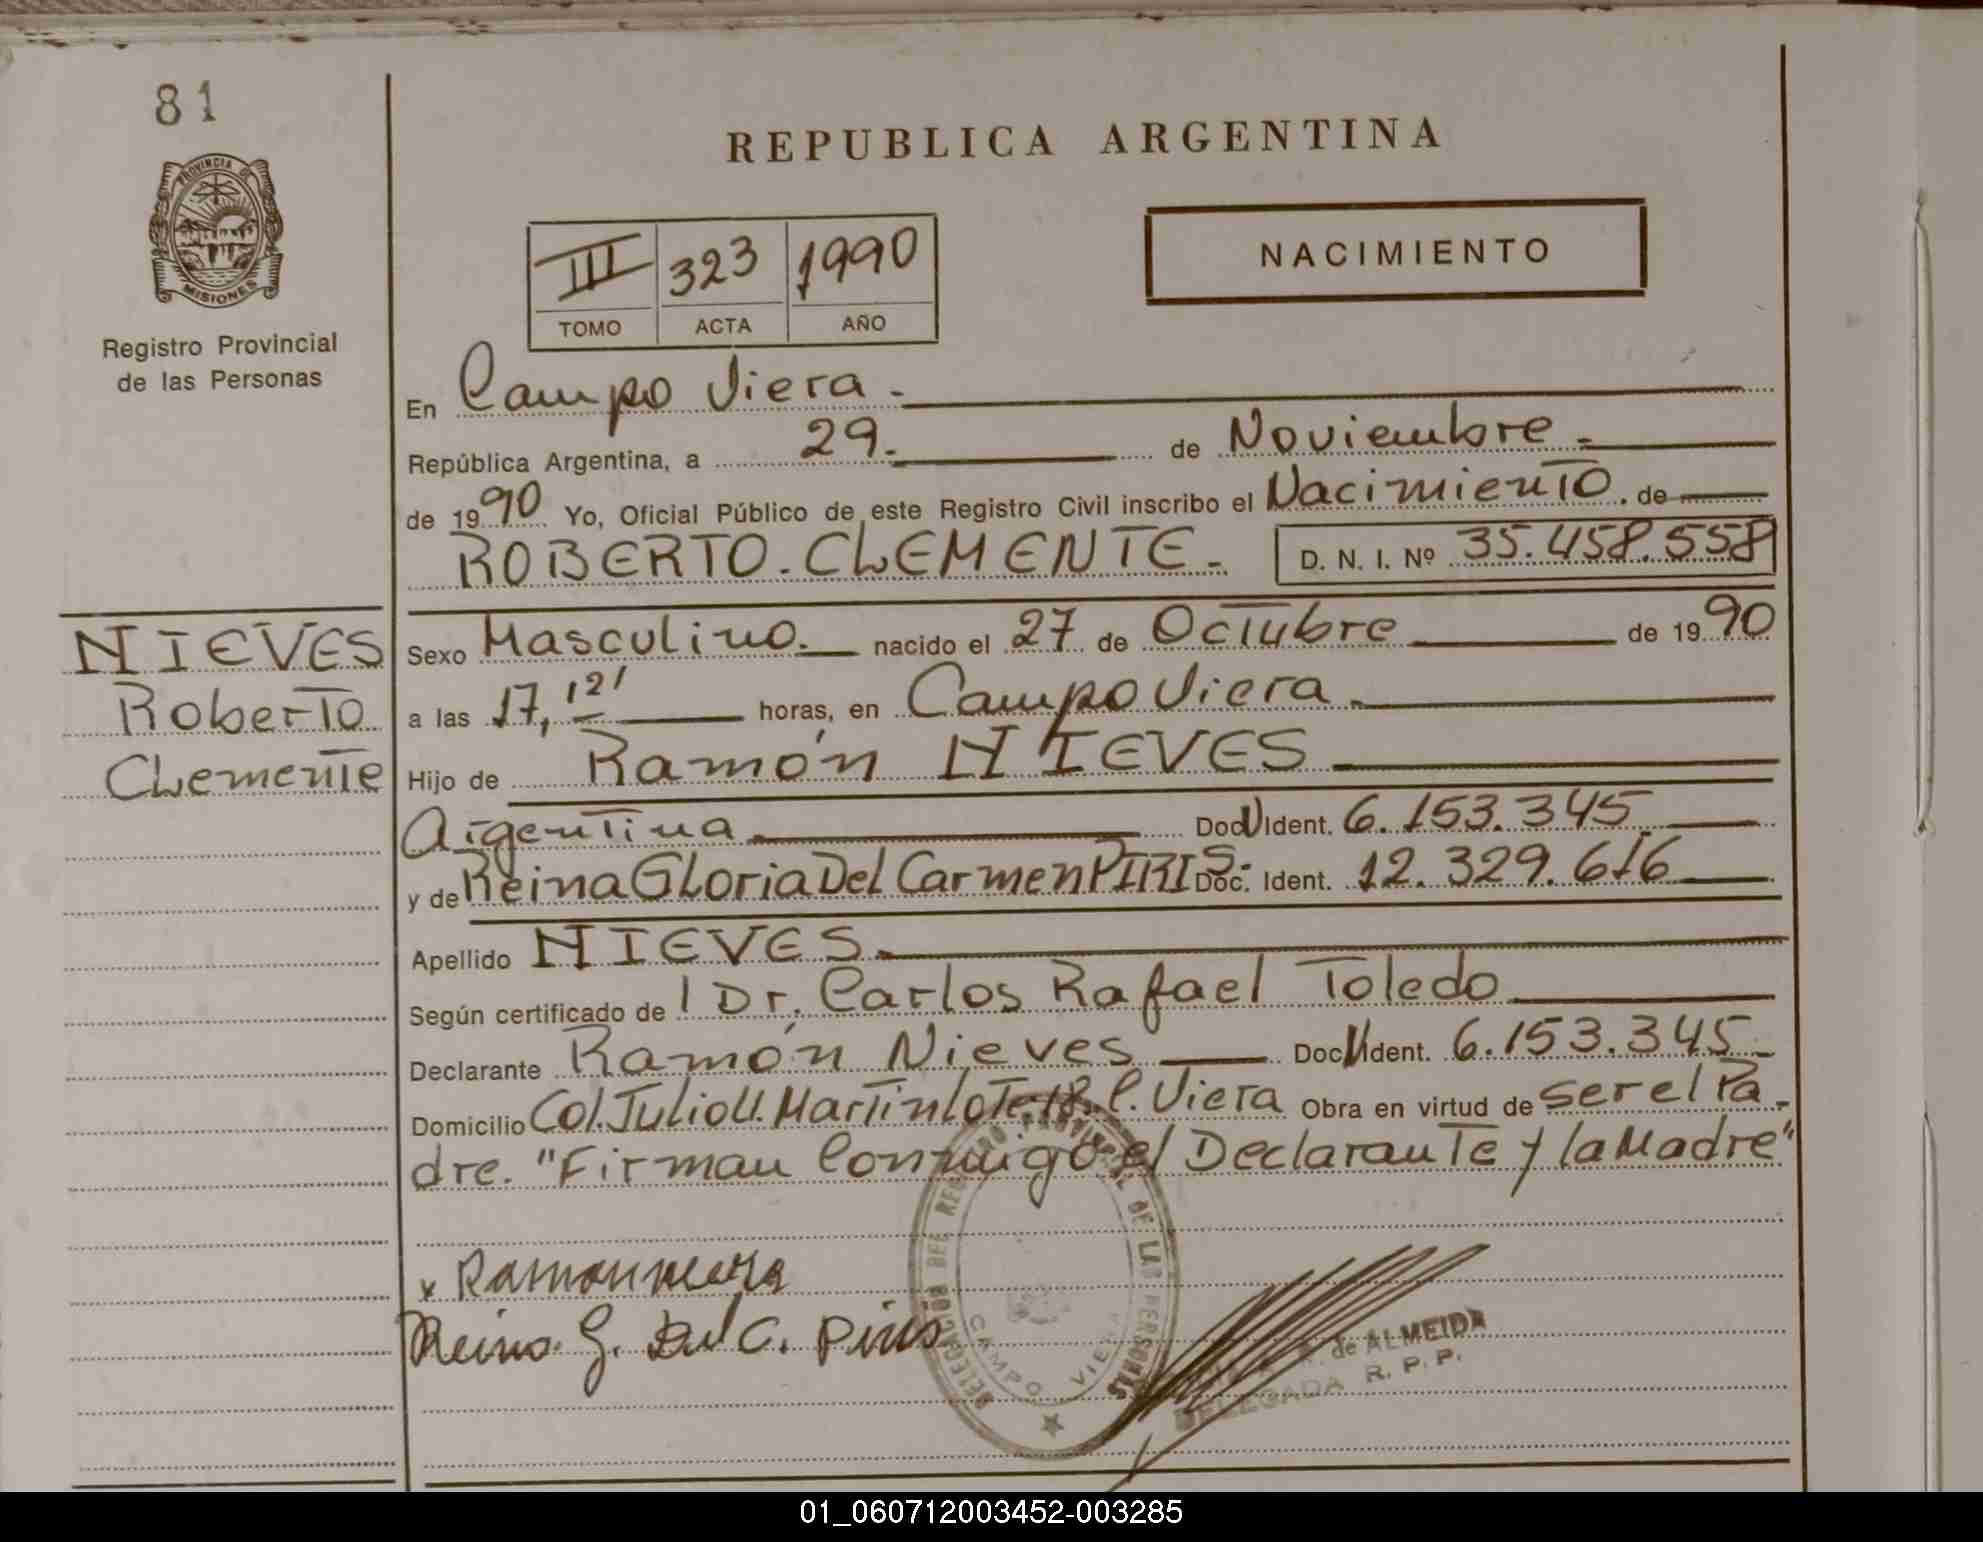 81
PROVINCIA DE
MISIONES
Registro Provincial
de las Personas
NIEVES
Roberto
Clemente
REPUBLICA ARGENTINA
III 323 1990
TOMO ACTA AÑO
NACIMIENTO
En Campo Viera.
República Argentina, a 29. de Noviembre.
de 1990 Yo, Oficial Público de este Registro Civil inscribo el Nacimiento. de
ROBERTO. CLEMENTE. D. N. I. Nº 35.458.558
Sexo Masculino. nacido el 27 de Octubre de 1990
a las 17,12' horas, en Campo Viera.
Hijo de Ramón NIEVES
Argentina Doc. Ident. 6.153.345
y de Reina Gloria Del Carmen PIRIS. Doc. Ident. 12.329.616
Apellido NIEVES.
Según certificado de l Dr. Carlos Rafael Toledo
Declarante Ramón Nieves Doc. Ident. 6.153.345
Domicilio Col. Julio U. Martin lote 18. C. Viera Obra en virtud de ser el Pa-
dre. "Firman Conmigo el Declarante y la Madre"
x Ramon nieves
Reina G. Del C. Piris
DEL REGISTRO PROVINCIAL DE LAS PERSONAS
CAMPO VIERA
de ALMEIDA
DELEGADA R. P. P.
01_060712003452-003285